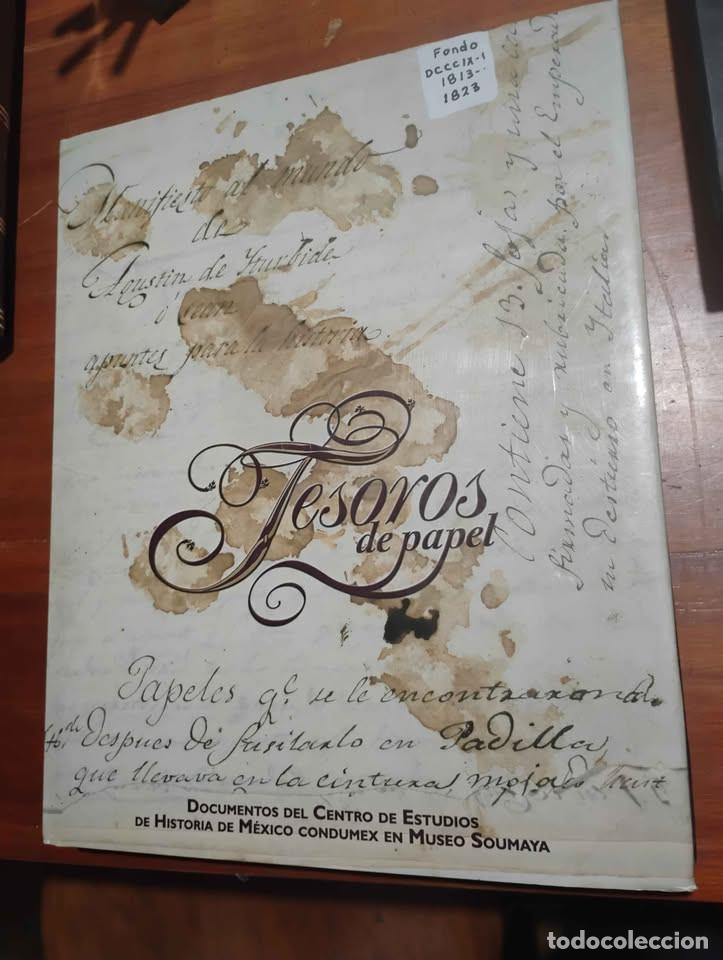 Fondo
DCCCIX-1
1813-
1823
Manifiesto al mundo
de
Agustin de Iturbide
ó sean
apuntes para la historia
Contiene 13. fojas y una ca
firmadas y rubricadas por el Emperad
su destierro en Italia
Tesoros
de papel
Papeles qᵉ. se le encontraron al
despues de fusilarlo en Padilla,
que llevava en la cintura, mojados
DOCUMENTOS DEL CENTRO DE ESTUDIOS
DE HISTORIA DE MÉXICO CONDUMEX EN MUSEO SOUMAYA
todocoleccion